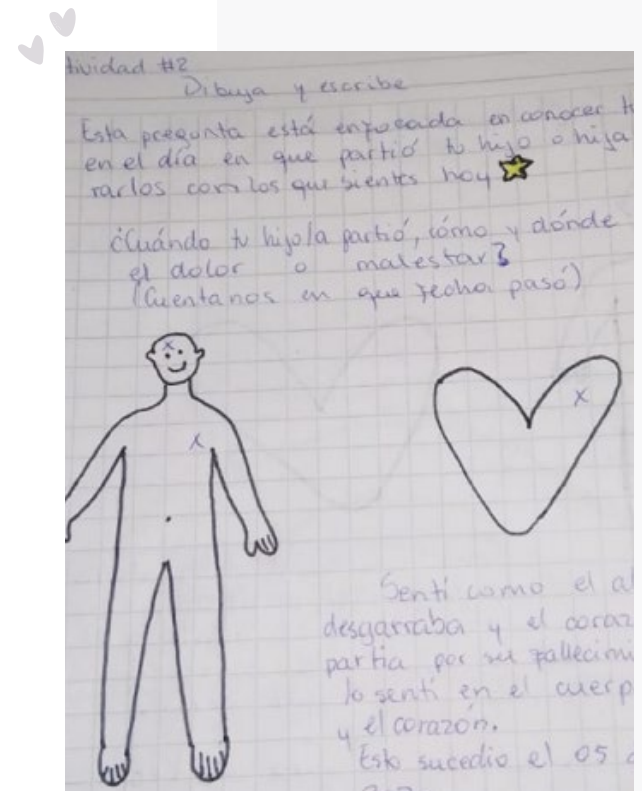 tividad #2
Dibuja y escribe
Esta pregunta está enfocada en conocer t
en el día en que partió tu hijo o hija
rarlos con los que sientes hoy
¿Cuándo tu hijo/a partió, cómo y dónde
el dolor o malestar?
(Cuentanos en que fecha pasó)
x
x
x
Sentí como el al
desgarraba y el coraz
partia por su fallecimi
lo sentí en el cuerp
y el corazón.
Esto sucedio el 05